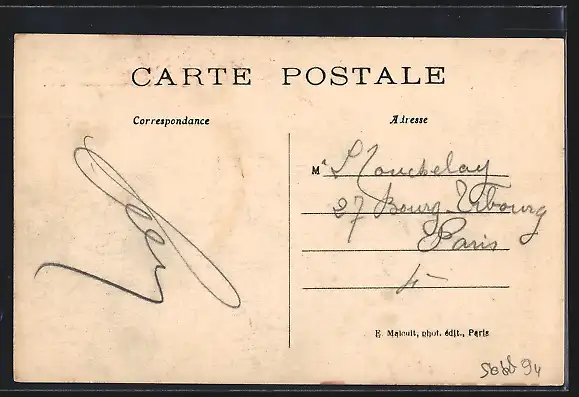 CARTE POSTALE
Correspondance
Adresse
M
27 Bourg Tibourg
Paris
E. Malcuit, phot. édit., Paris
94